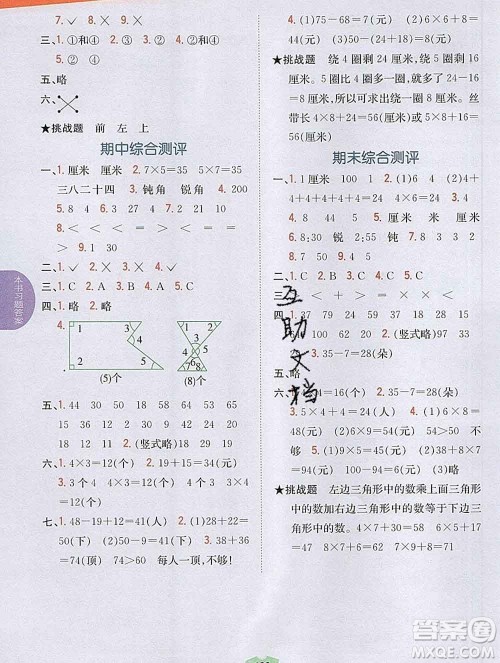 1.✓ 2.× 3.× 4.✓
三、1.①和④ 2.①和④
3.①和④ 4.②和④
五、略
六、
★挑战题 前 左 上
期中综合测评
一、1.厘米 厘米 2.7×5=35 5×7=35
三八二十四 3.钝角 锐角 4.4 3
5.8 4 7 6.3 2 7.24 16 20
8.> < < > = > 9.100
10.8 5
二、1.✓ 2.× 3.× 4.✓
三、1.C 2.A 3.C 4.A 5.C
四、1.略 2.略 3.略
4. 1 2 3 4 5 1 2 3 4 5 6 7 8
(5)个 (8)个
五、1.44 30 45 35 16 45 28
58 18 6 15 32 17 24
2.(竖式略) 38 83 60 20
六、1.4×3=12(个) 2.19+15=34(个)
3.略
七、1.48-19+12=41(个) 2.38+12=
50(下) 50-9=41(下) 3.38+36=
74(顶) 74>56 每人一项,不够!
44(元) 3.(1)75-68=7(元) (2)6×6+8=
44(元) 52-44=8(元) (3)略
★挑战题 绕4圈剩24厘米,绕5圈剩8厘
米,说明多绕一圈,就少了24-16=
8(厘米),也就是一圈用8厘米。丝
带长4×8+24=56(厘米)或5×8+
16=56(厘米)。
期末综合测评
一、1.1厘米 2.(1)4 6 (2)4+4+
4+4+4+4 4×6 6×4 四六二十四
3.8 9 9 8 4.米 米 厘米 厘米
5.100 8 6.锐 5 7.钝 2 8.30
9.8
二、1.A 2.C 3.B 4.A 5.B
三、< < + > = × -
四、1.24 40 20 30 15 36 27
24 2.(竖式略) 18 100 93 75
五、略
4=16(个) 2.35-7=28(朵)
3.5×4+4=24(个) 4.(1)54+
45=99(元) 99<100 够 (2)100-
99=1(元) 5.(1)3×9=27(元)
(2)6×9=54(元) 54>50 不够
(3)2×6+9=21(元)
★挑战题 左边三角形中的数乘上面三角形
中的数加右边三角形中的数等于下边三
角形中的数。4×7+30=58 6×5+17
=47 8×4+31=63
本书习题答案
互助文档
答案圈
MXQE.COM